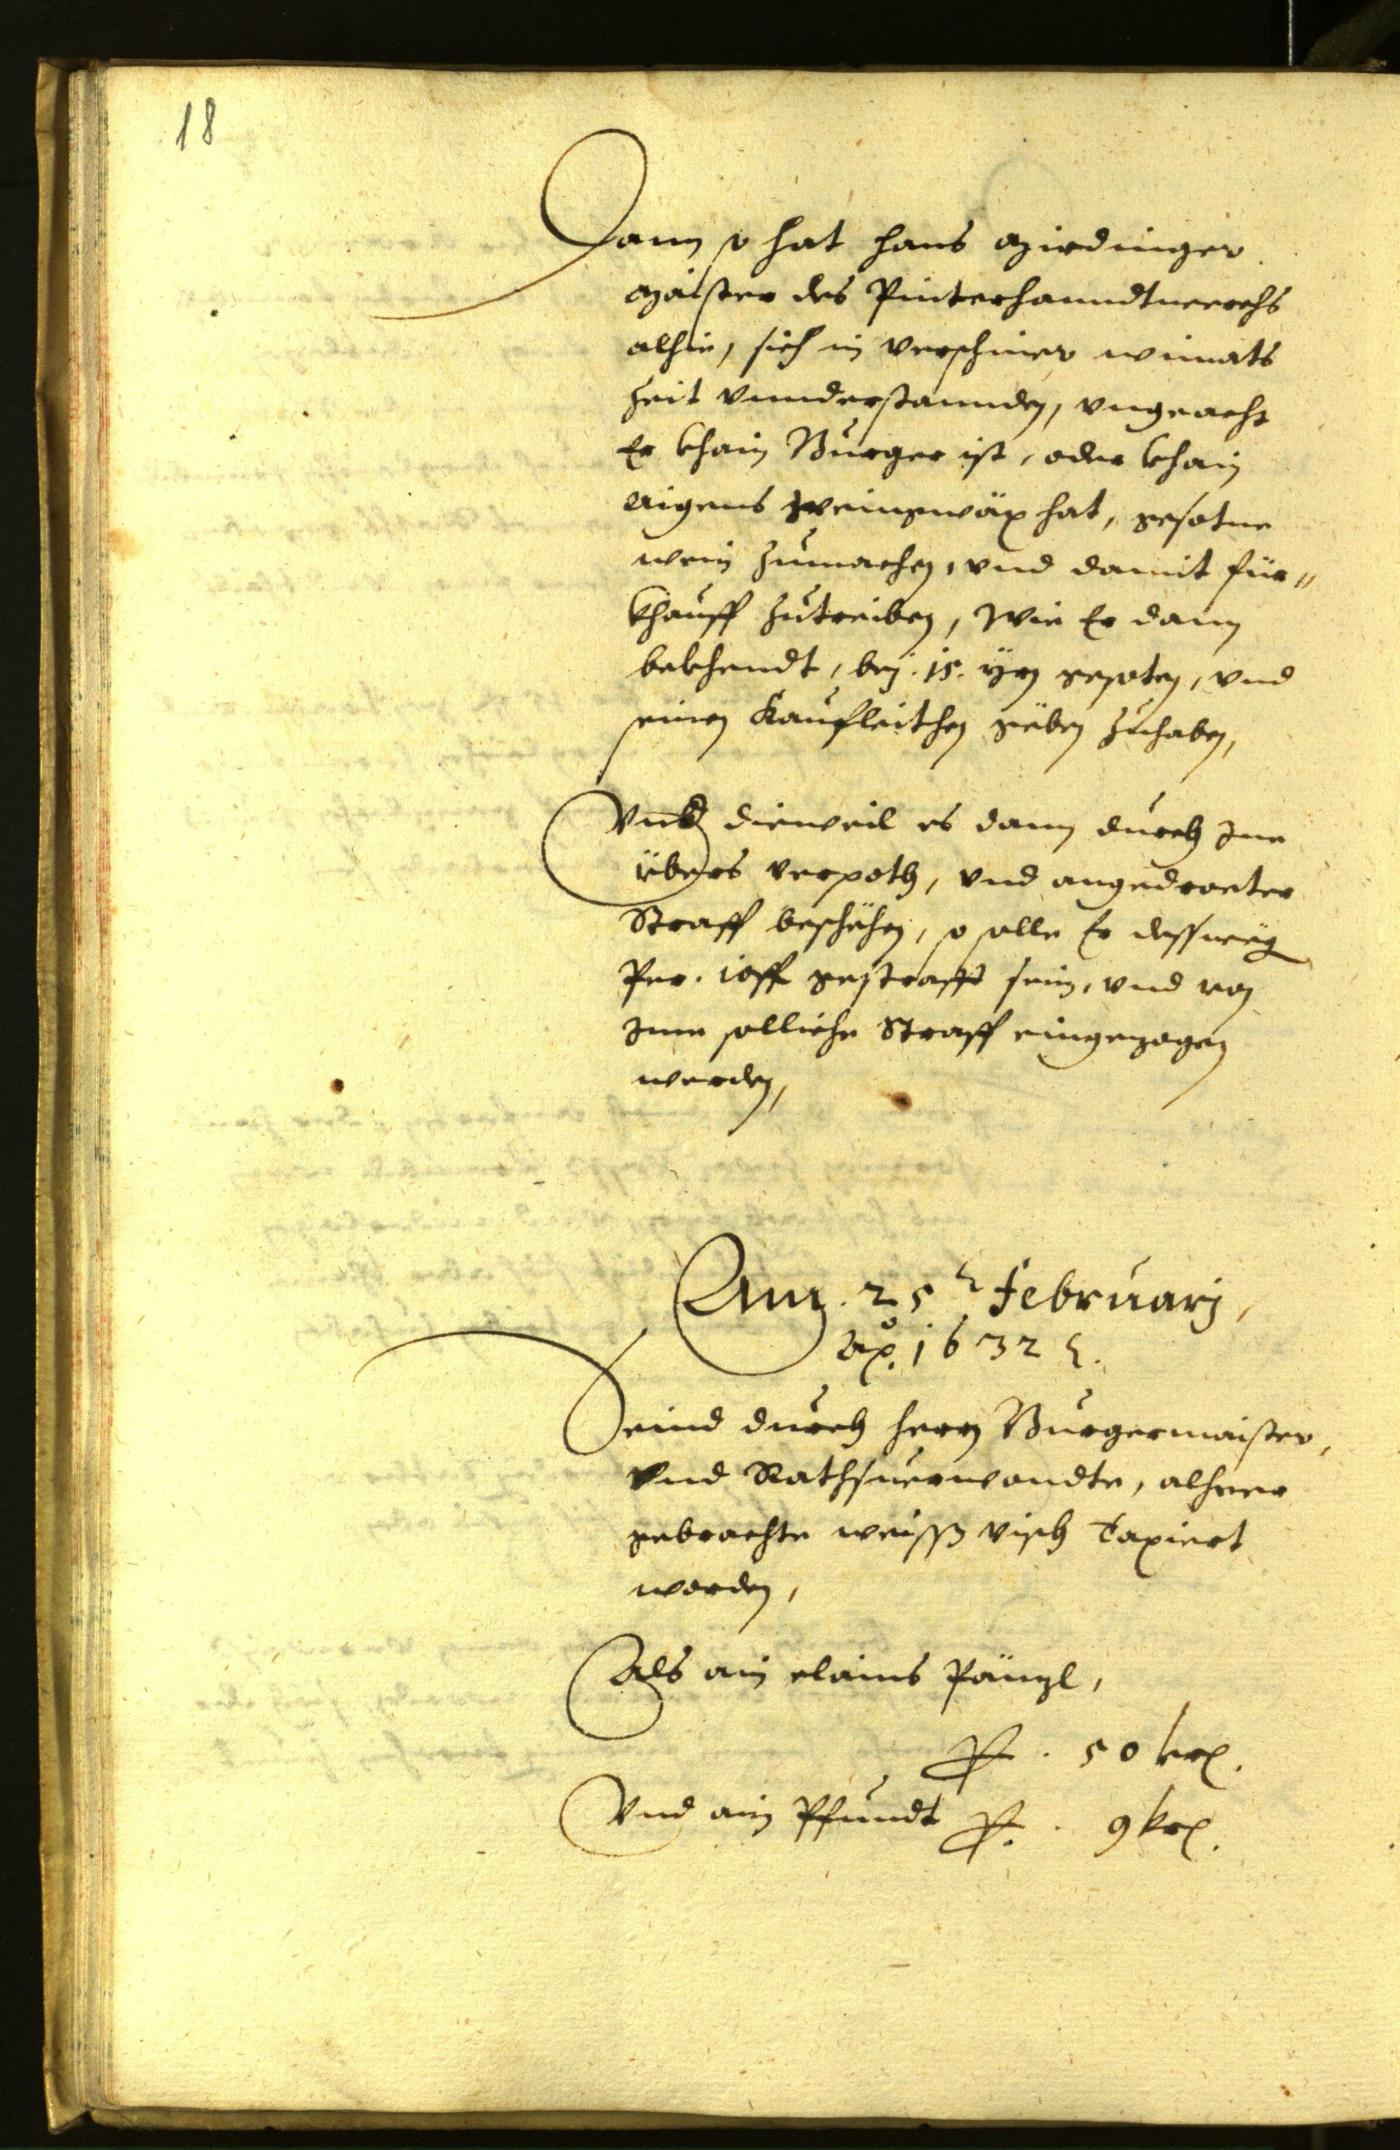 18
Dann so hat Hanns Mirdinger
Maister des Pinterhanndtwerchs
alhie, sich in verschiner wimats
Zeit vnnderstannden, vngeacht
Er khain Burger ist, oder khain
aigens Weingwäx hat, gesotne
wein Zumachen, vnd damit für„
khauff Zutreiben, Wie Er dann
bekhendt, bej. 15. Yrn gesoten, vnd
seinen Kaufleithen geben Zuhaben,
Vnd dieweil es dann durch Ine
übers verpoth, vnd angedroeter
Straff beschehen, so solle Er dessweg
Per. 10 ff gestrafft sein, vnd von
Ime solliche Straff eingezogen
werden,
Am. 25 Februarj,
Ao. 1632
Seind durch herrn Burgermaister,
vnd Rathsuerwandte, alheer
gebrachte weiss visch Taxiert
worden,
Als ain clains Pänzl,
P. 50 krl.
Vnd ain Pfundt P. 9 krl.